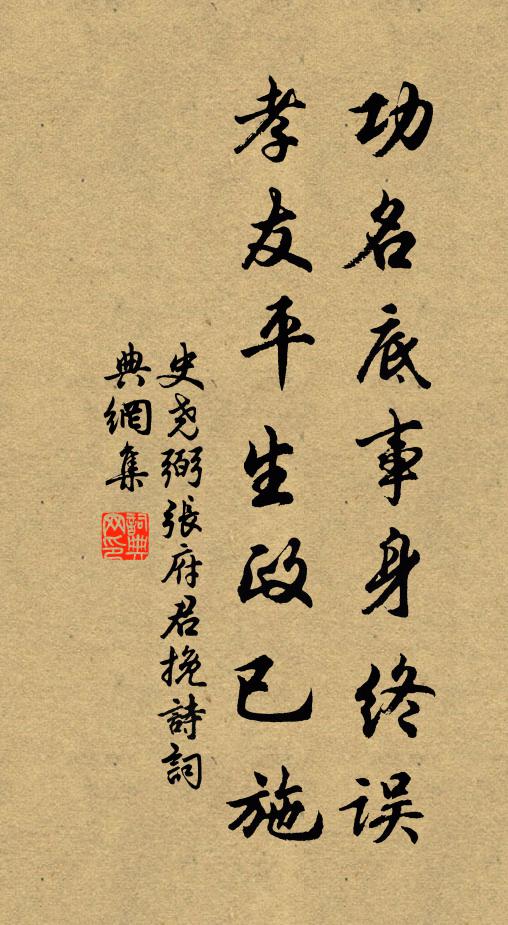 功名底事身终误
孝友平生政已施
史尧弼張府君挽詩詞
典網集
詞典
网印